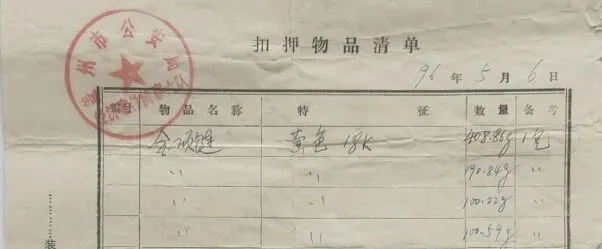 扣押物品清单
96年5月6日
编号 物品名称 特征 数量 备考
金项链 黄色 18K 1包
〃 〃 190.84g 〃
〃 〃 100.22g 〃
〃 〃 100.59g 〃
州市公安局
装